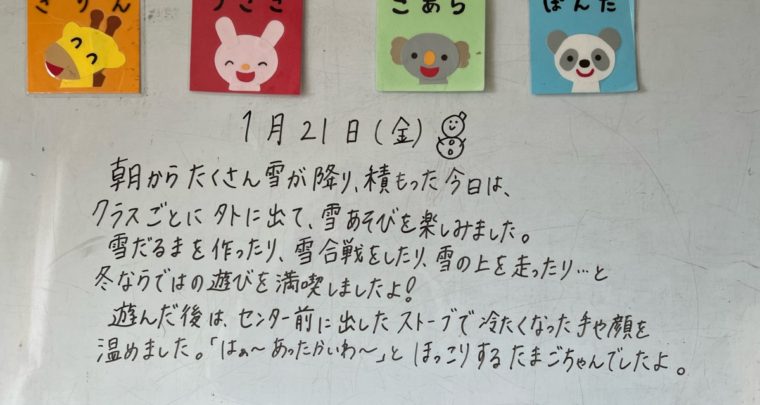 きりん うさぎ こあら ぱんだ
1月21日(金)
朝からたくさん雪が降り、積もった今日は、
クラスごとに外に出て、雪あそびを楽しみました。
雪だるまを作ったり、雪合戦をしたり、雪の上を走ったり…と
冬ならではの遊びを満喫しましたよ!
遊んだ後は、センター前に出したストーブで冷たくなった手や顔を
温めました。「はぁ〜あったかいわ〜」とほっこりするたまごちゃんでしたよ。